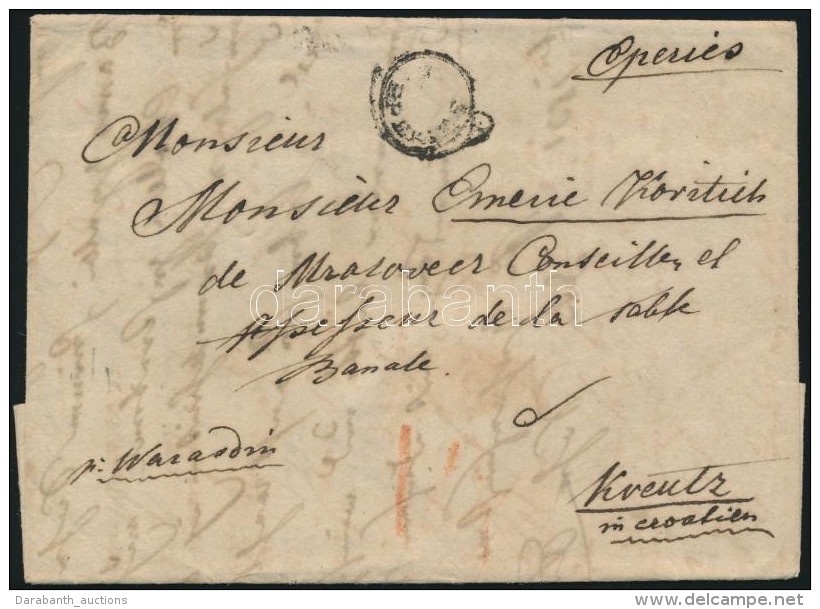 Eperies
Monsieur
Monsieur Emeric Koritich
de Mrasovecz Conseiller, et
Assesseur de la Table
Banale.
p: Warasdin
Kreutz
in Croatien
darabanth
Darabanth_auctions